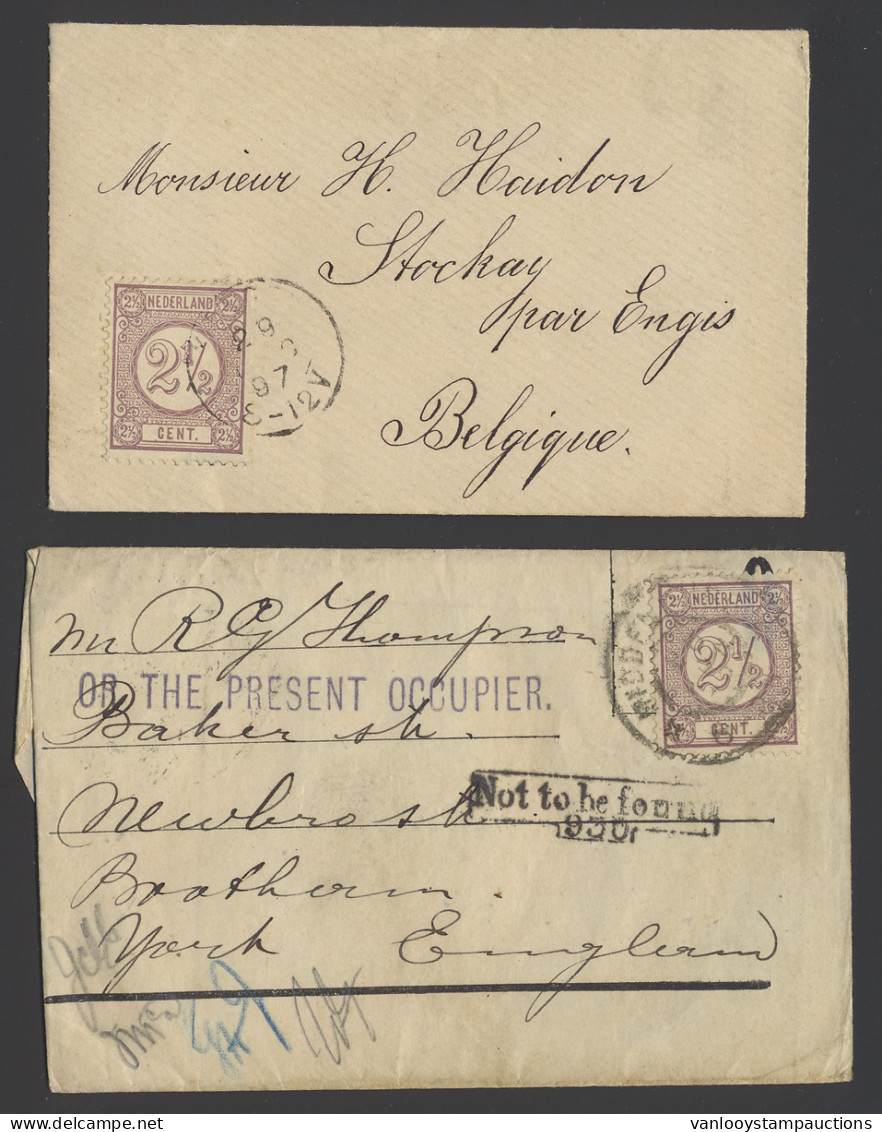 Monsieur H. Haidon
Stockay
par Engis
Belgique.
2½ NEDERLAND 2½
2½
2½ CENT. 2½
29
97
8-12V
Mr R G Thompson
OR THE PRESENT OCCUPIER.
Baker st.
Newbro st.
Bootham
York England
2½ NEDERLAND 2½
2½
CENT.
Not to be found
930
delcampe.net
vanlooystampauctions